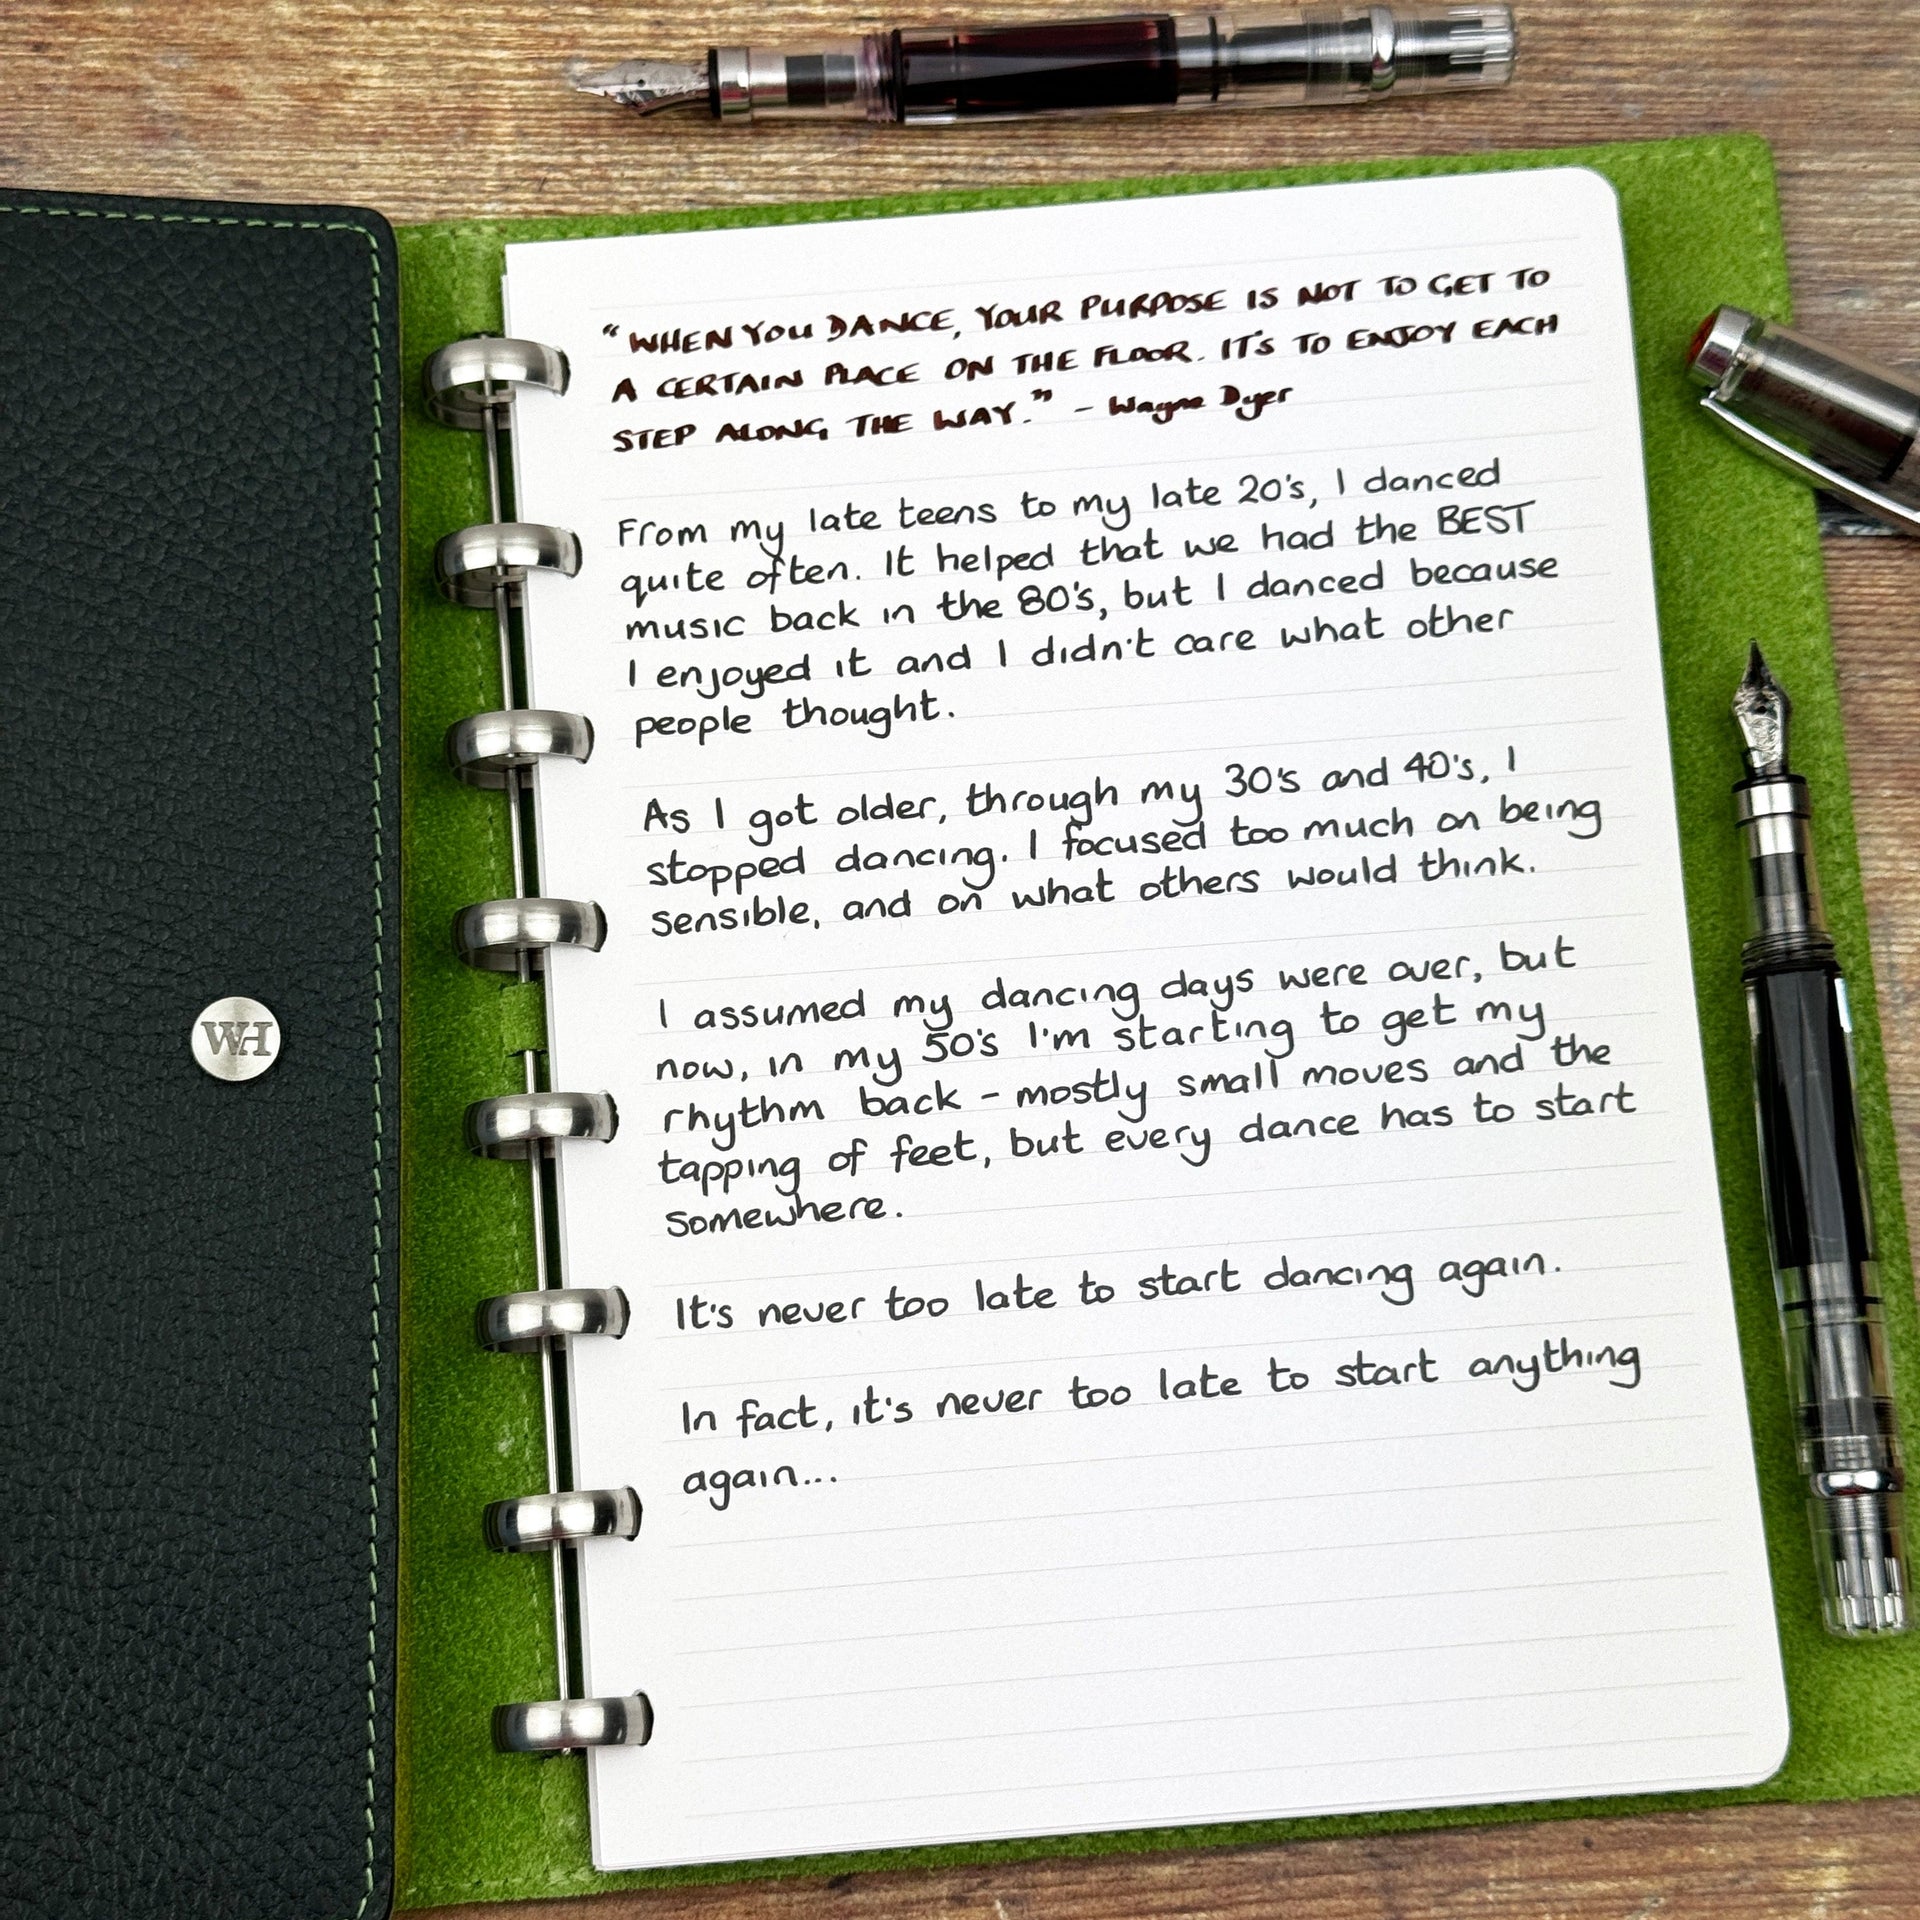 WH
"WHEN YOU DANCE, YOUR PURPOSE IS NOT TO GET TO
A CERTAIN PLACE ON THE FLOOR. IT'S TO ENJOY EACH
STEP ALONG THE WAY." - Wayne Dyer
From my late teens to my late 20's, I danced
quite often. It helped that we had the BEST
music back in the 80's, but I danced because
I enjoyed it and I didn't care what other
people thought.
As I got older, through my 30's and 40's, I
stopped dancing. I focused too much on being
sensible, and on what others would think.
I assumed my dancing days were over, but
now, in my 50's I'm starting to get my
rhythm back - mostly small moves and the
tapping of feet, but every dance has to start
somewhere.
It's never too late to start dancing again.
In fact, it's never too late to start anything
again...